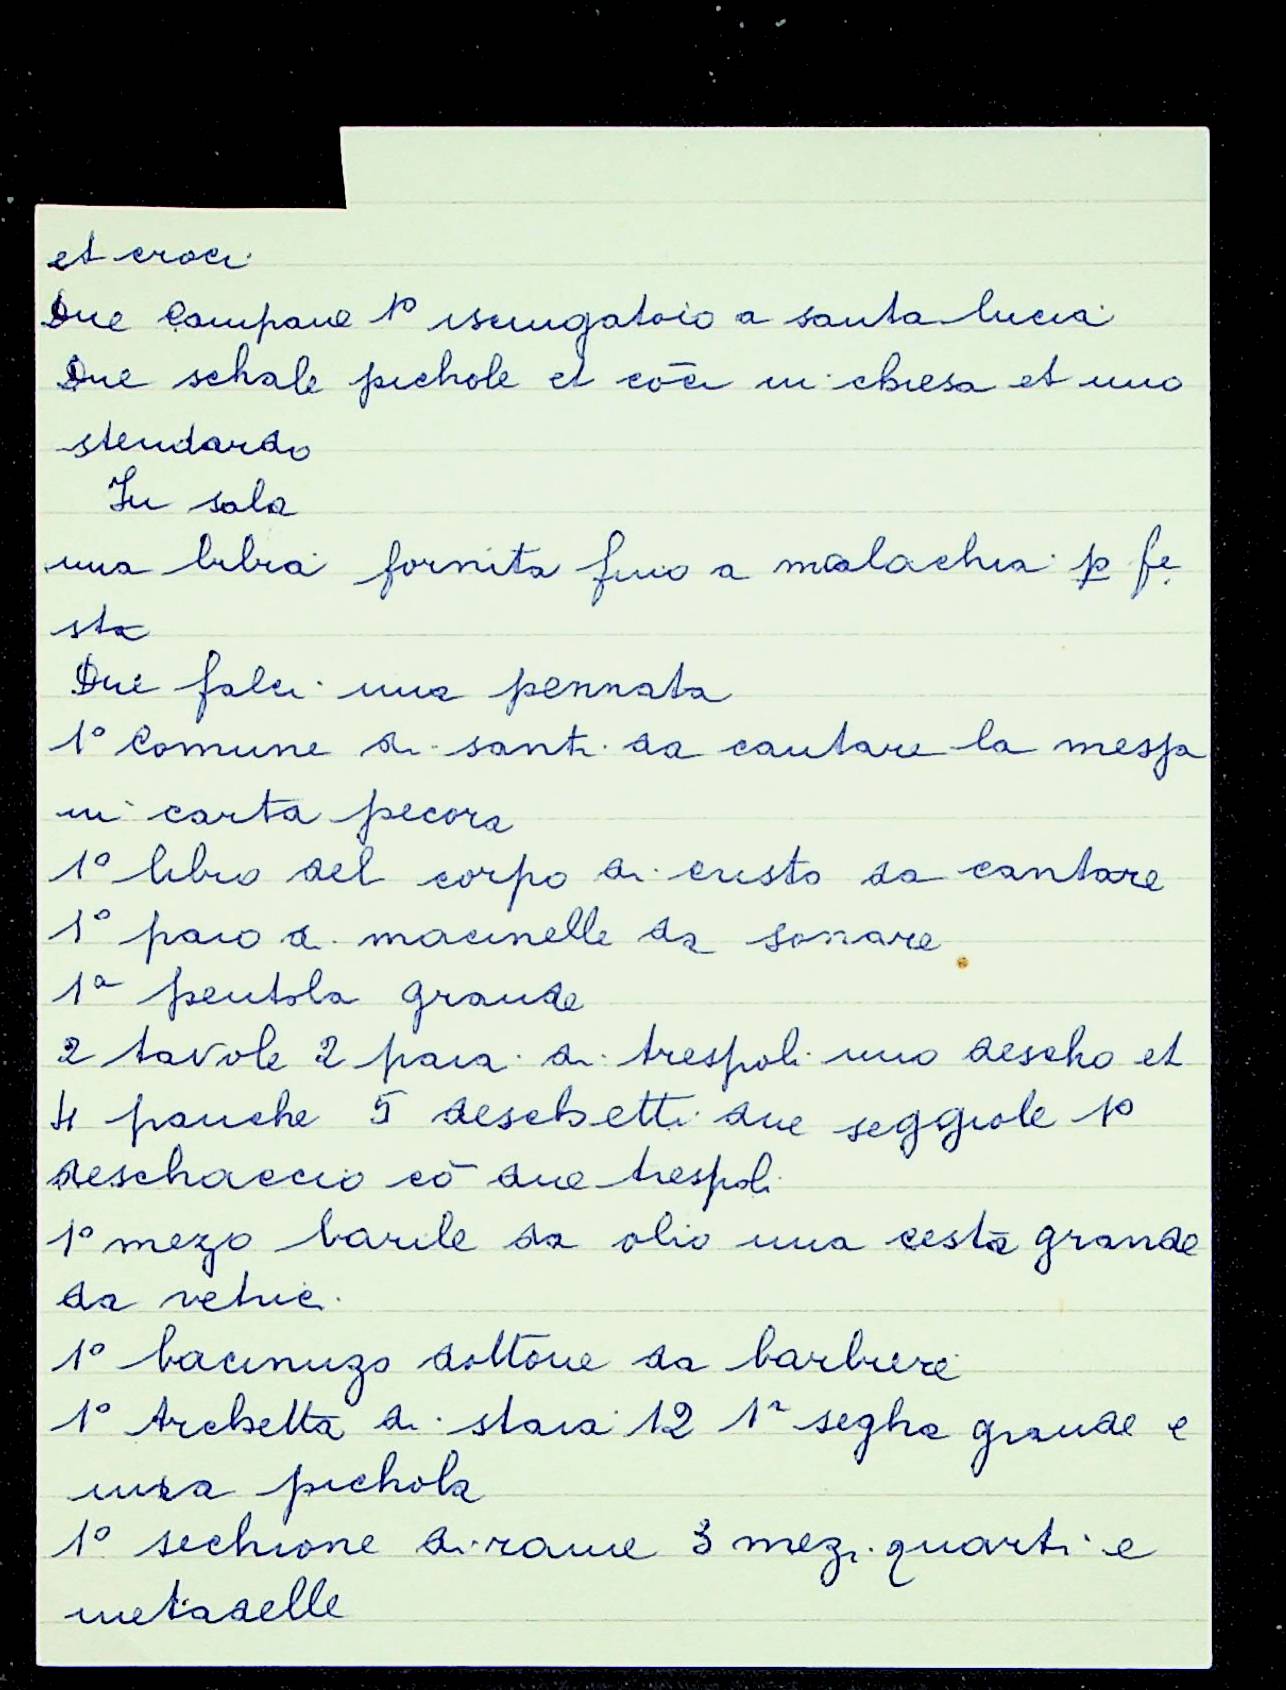 et croci
Due Campane 1º isciugatoio a santa lucia
Due schale pichole et cōci in chiesa et uno
stendardo
In sala
una bibia fornita fino a malachia p̱ fe
sta
Due falci una pennata
1º Comune di santi da cantare la messa
in carta pecora
1º libro del corpo di cristo da cantare
1º paio di macinelle da sonare
1ª pentola grande
2 tavole 2 paia di trespoli uno descho et
4 panche 5 deschetti due seggiole 1º
deschaccio cō due trespoli
1º mezo barile da olio una cesta grande
da vetrici
1º bacinuzo dottone da barbiere
1º Archetta di staia 12 1ª segha grande e
una pichola
1º sechione di rame 3 mezi quarti e
metadelle